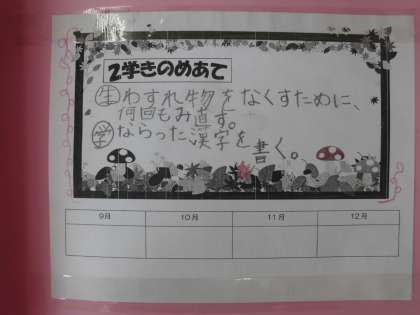 2学きのめあて
生わすれ物をなくすために、
何回もみ直す。
学ならった漢字を書く。
9月
10月
11月
12月